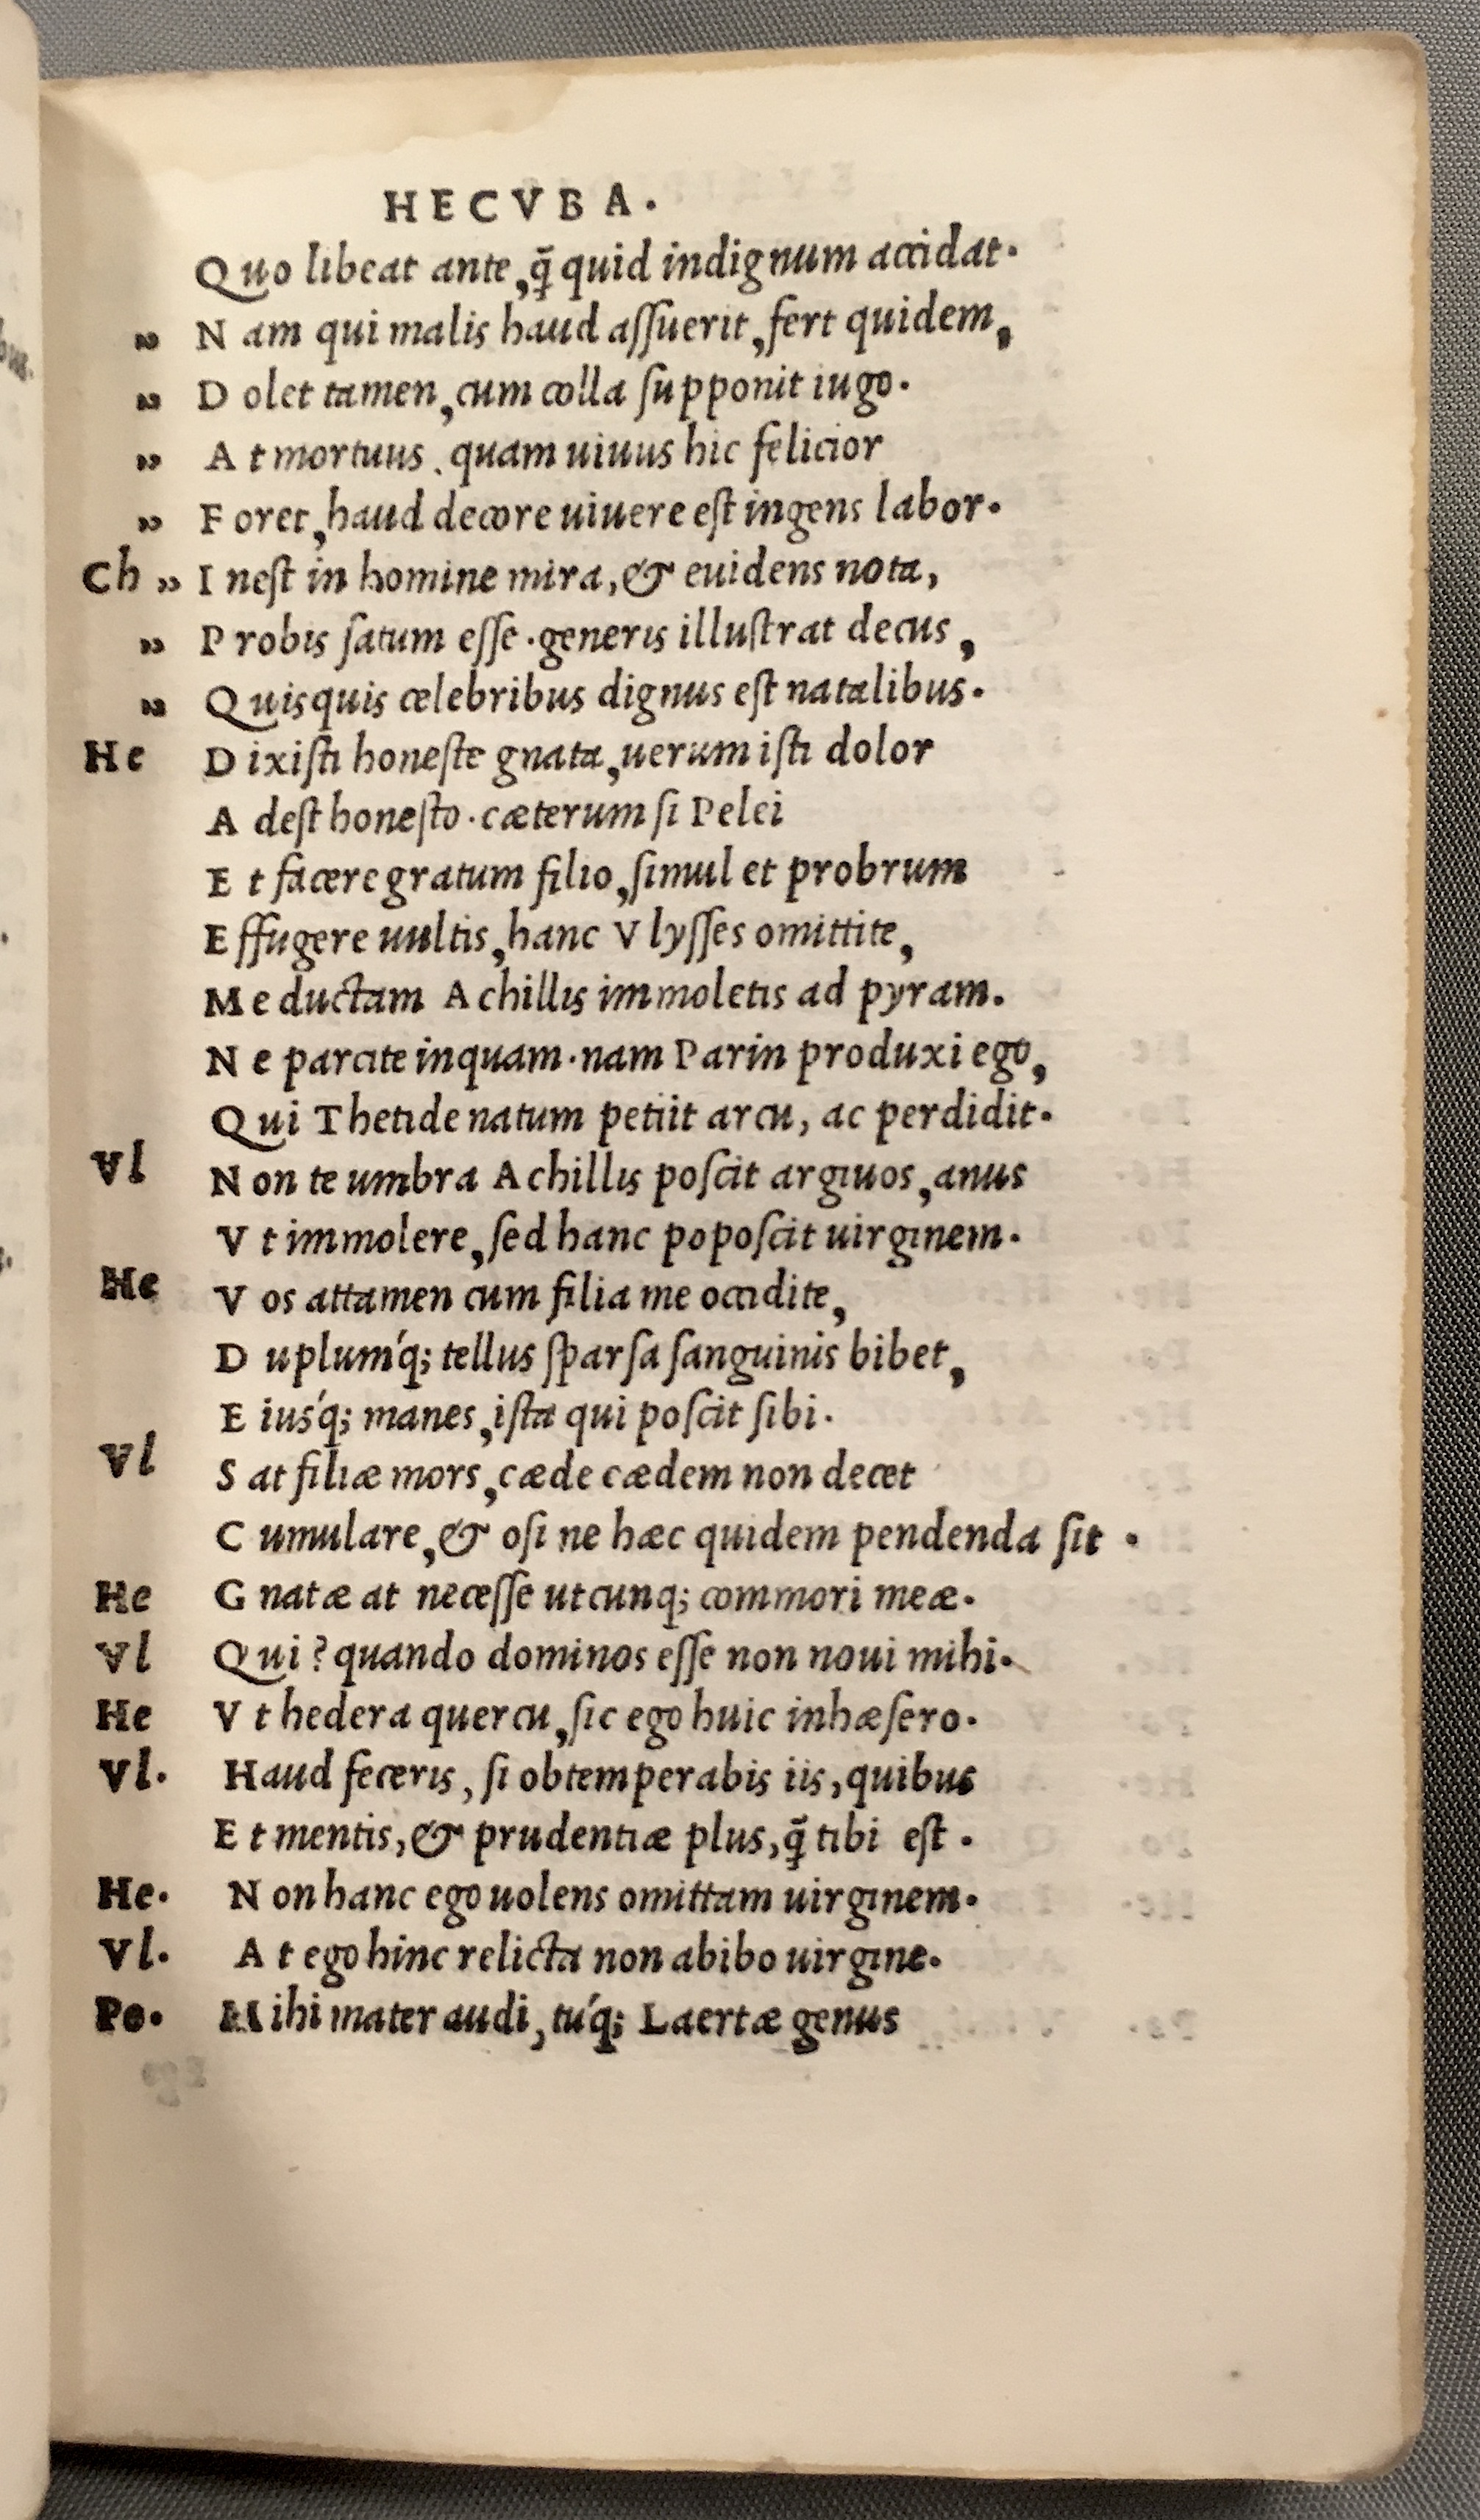 HECVBA.
Quo libeat ante, q̃ quid indignum accidat.
„ Nam qui malis haud aſſuerit, fert quidem,
„ Dolet tamen, cum colla ſupponit iugo.
„ At mortuus, quam uiuus hic felicior
„ Foret, haud decore uiuere eſt ingens labor.
Ch „ Ineſt in homine mira, & euidens nota,
„ Probis ſatum eſſe. generis illuſtrat decus,
„ Quisquis celebribus dignus eſt natalibus.
He Dixiſti honeſte gnata, uerum iſti dolor
Adeſt honeſto. cæterum ſi Pelei
Et facere gratum filio, ſimul et probrum
Effugere uultis, hanc Vlyſſes omittite,
Me ductam Achillis immoletis ad pyram.
Ne parcite inquam. nam Parin produxi ego,
Qui Thetide natum petiit arcu, ac perdidit.
Vl Non te umbra Achillis poſcit argiuos, anus
Vt immolere, ſed hanc popoſcit uirginem.
He Vos attamen cum filia me occidite,
Duplum´q; tellus ſparſa ſanguinis bibet,
Eius´q; manes, iſta qui poſcit ſibi.
Vl Sat filiæ mors, cæde cædem non decet
Cumulare, & oſi ne hæc quidem pendenda ſit.
He Gnatæ at neceſſe utcunq; commori meæ.
Vl Qui? quando dominos eſſe non noui mihi.
He Vt hedera quercu, ſic ego huic inhæſero.
Vl. Haud feceris, ſi obtemperabis iis, quibus
Et mentis, & prudentiæ plus, q̃ tibi eſt.
He. Non hanc ego uolens omittam uirginem.
Vl. At ego hinc relicta non abibo uirgine.
Po. Mihi mater audi, tú q; Laertæ genus